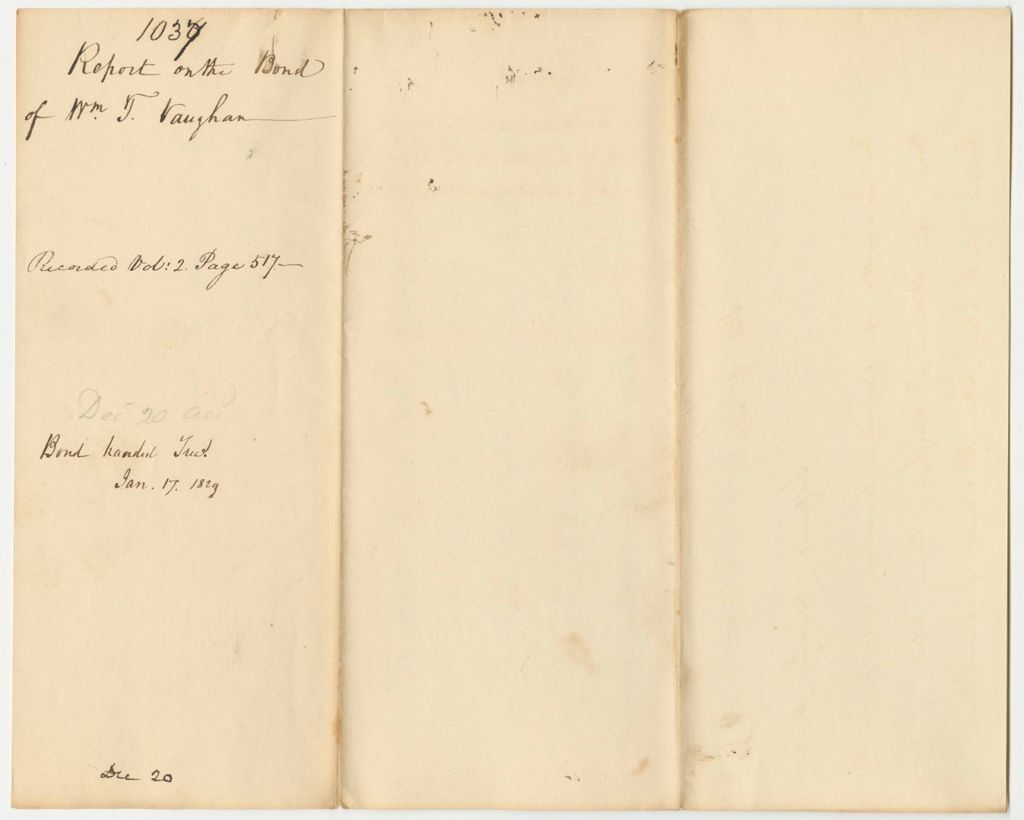 1037
Report on the Bond
of Wm. T. Vaughan
Recorded Vol: 2. Page 517
Dec 20
Bond handed Treas.
Jan. 17. 1829
Dec 20